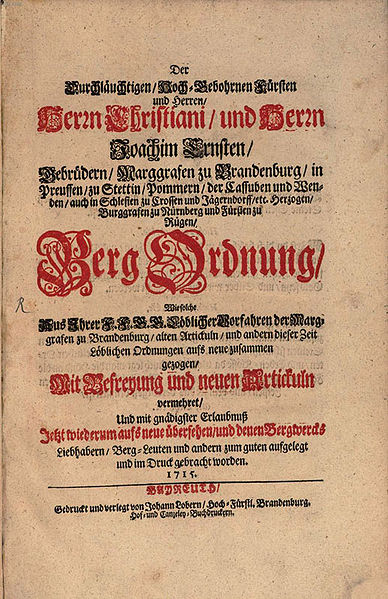 Der
Durchläuchtigen/ Hoch-Gebohrnen Fürsten
und Herren/
Herrn Christiani/ und Herrn
Joachim Ernsten/
Gebrüdern/ Marggrafen zu Brandenburg/ in
Preussen/ zu Stettin/ Pommern/ der Cassuben und Wen-
den/ auch in Schlesien zu Crossen und Jägerndorff/ etc. Herzogen/
Burggrafen zu Nürnberg und Fürsten zu
Rügen/
Berg Ordnung/
Wie solche
Aus Ihrer F. F. G. G. Löblicher Vorfahren der Marg-
grafen zu Brandenburg/ alten Artickuln/ und andern dieser Zeit
Löblichen Ordnungen aufs neue zusammen
gezogen/
Mit Befreyung und neuen Artickuln
vermehret/
Und mit gnädigster Erlaubnuß
Jetzt wiederum aufs neue übersehen/ und denen Bergwercks
Liebhabern/ Berg-Leuten und andern zum guten aufgelegt
und im Druck gebracht worden.
1715.
BAYREUTH/
Gedruckt und verlegt von Johann Lobern/ Hoch-Fürstl. Brandenburg.
Hof- und Canzeley-Buchdruckern.